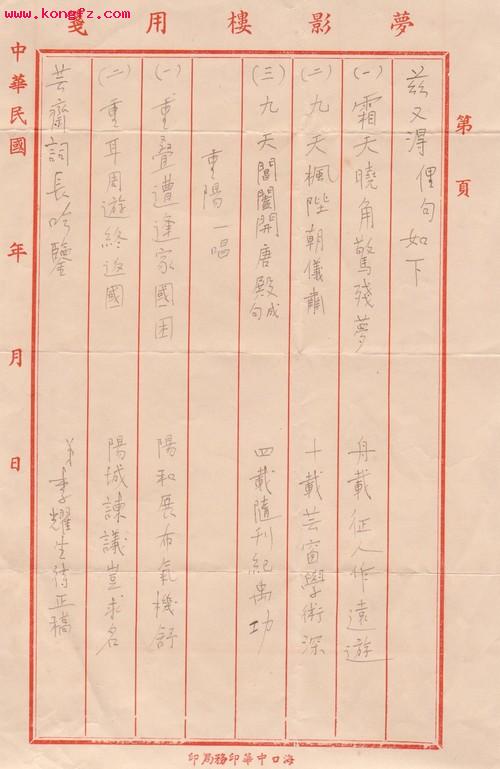 www.kongfz.com
夢影樓用箋
第 頁
茲又得俚句如下
(一)霜天曉角驚殘夢 舟載征人作遠遊
(二)九天楓陛朝儀肅 十載芸窗學術深
(三)九天閶闔開唐殿成句 四載隨刊紀禹功
重陽 一唱
(一)重疊遭逢家國困 陽和展布氣機舒
(二)重耳周遊終返國 陽城諫議豈求名
芸齋詞長吟鑒 弟李耀生待正稿
中華民國 年 月 日
海口中華印務局印